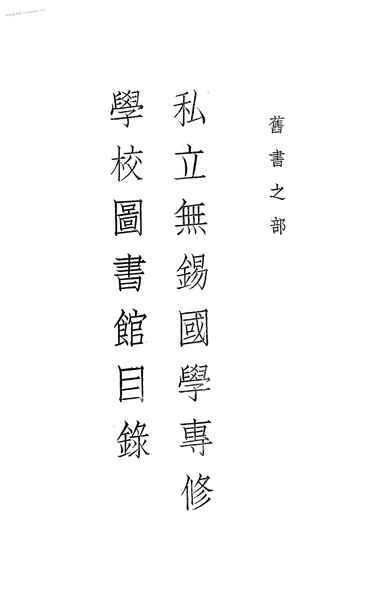 舊書之部
私立無錫國學專修
學校圖書館目錄